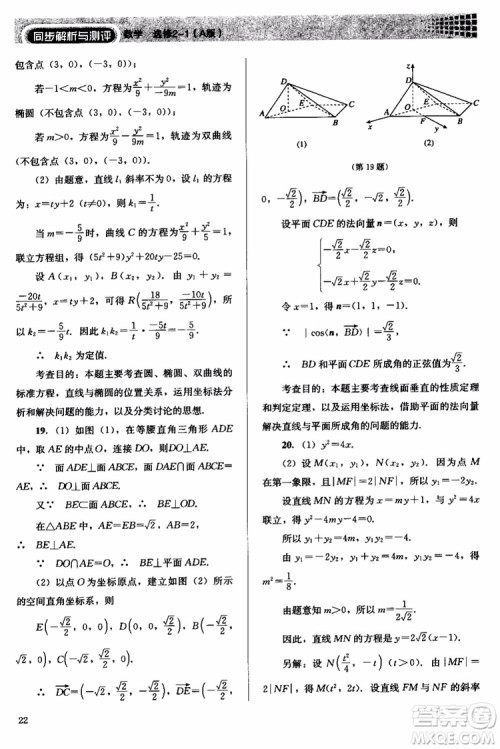 同步解析与测评 数学 选修2-1（A版）
包含点（3，0），（-3，0）.
若-1<m<0，方程为x²/9+y²/(-9m)=1，轨迹为
椭圆（不包含点（3，0），（-3，0））.
若m>0，方程为x²/9-y²/9m=1，轨迹为双曲线
（不包含点（3，0），（-3，0））.
（2）由题意，直线l₁斜率不为0，设l₁的方程
为：x=ty+2（t≠0），k₁=1/t.
当m=-5/9时，曲线C的方程为x²/9+y²/5=1.
联立方程组，得（5t²+9）y²+20ty-25=0.
设A（x₁，y₁），B（x₂，y₂），则y₁+y₂=
-20t/(5t²+9)，x₁+x₂=36/(5t²+9)，可得R（18/(5t²+9)，-10t/(5t²+9)）.
k₂=-5/9 t，k₁k₂=1/t·(-5t/9)=-5/9.
∴ k₁k₂为定值.
考查目的：本题主要考查圆、椭圆、双曲线的
标准方程，直线与椭圆的位置关系，运用综合分析
和解决问题的能力，以及分类讨论的思想.
19.（1）如图（1），在等腰直角三角形ADE中，
取AE的中点O，则DO⊥AE.
∵ 面DAE⊥面ABCE，面DAE∩面ABCE=AE，
∴ DO⊥面ABCE.
又∵ BE⊂面ABCE，∴ DO⊥BE.
在△ABE中，AE=BE=√2，AB=2，
∴ BE⊥AE.
∵ DO∩AE=O，∴ BE⊥面ADE.
（2）以点O为坐标原点，建立如图（2）所示
的空间直角坐标系，则
E（-√2/2，0，0），D（0，0，√2/2），B（-√2/2，
√2，0），C（-√2，√2/2，0）.
∴ DC=（-√2，√2/2，-√2/2），DE=（-√2/2，
22
D C E O A B
(1)
z D C E O A B x F y
(2)
（第19题）
0，-√2/2），BD=（√2/2，-√2，√2/2）.
令x=1，得n=（1，1，-1）.
∴ BD和平面CDE所成角的正弦值为
考查目的：本题主要考查线面垂直的性质定理
和判定定理，以及借助平面的法向量
解决直线与平面所成角的问题.
20.（1）y²=4x.
（2）设M（x₁，y₁），N（x₂，y₂）.因为点M
在第一象限，且|MF|=2|NF|，所以y₁=-2y₂.
设直线MN的方程为x=my+1，与y²=4x
联立，得y²-4my-4=0.
∴ y₁+y₂=4m，y₁y₂=-4，y₁=-2y₂，得m²=
1/8.
由题意知m>0，所以m=√2/4.
因此，直线MN的方程为x=√2/4 y+1.